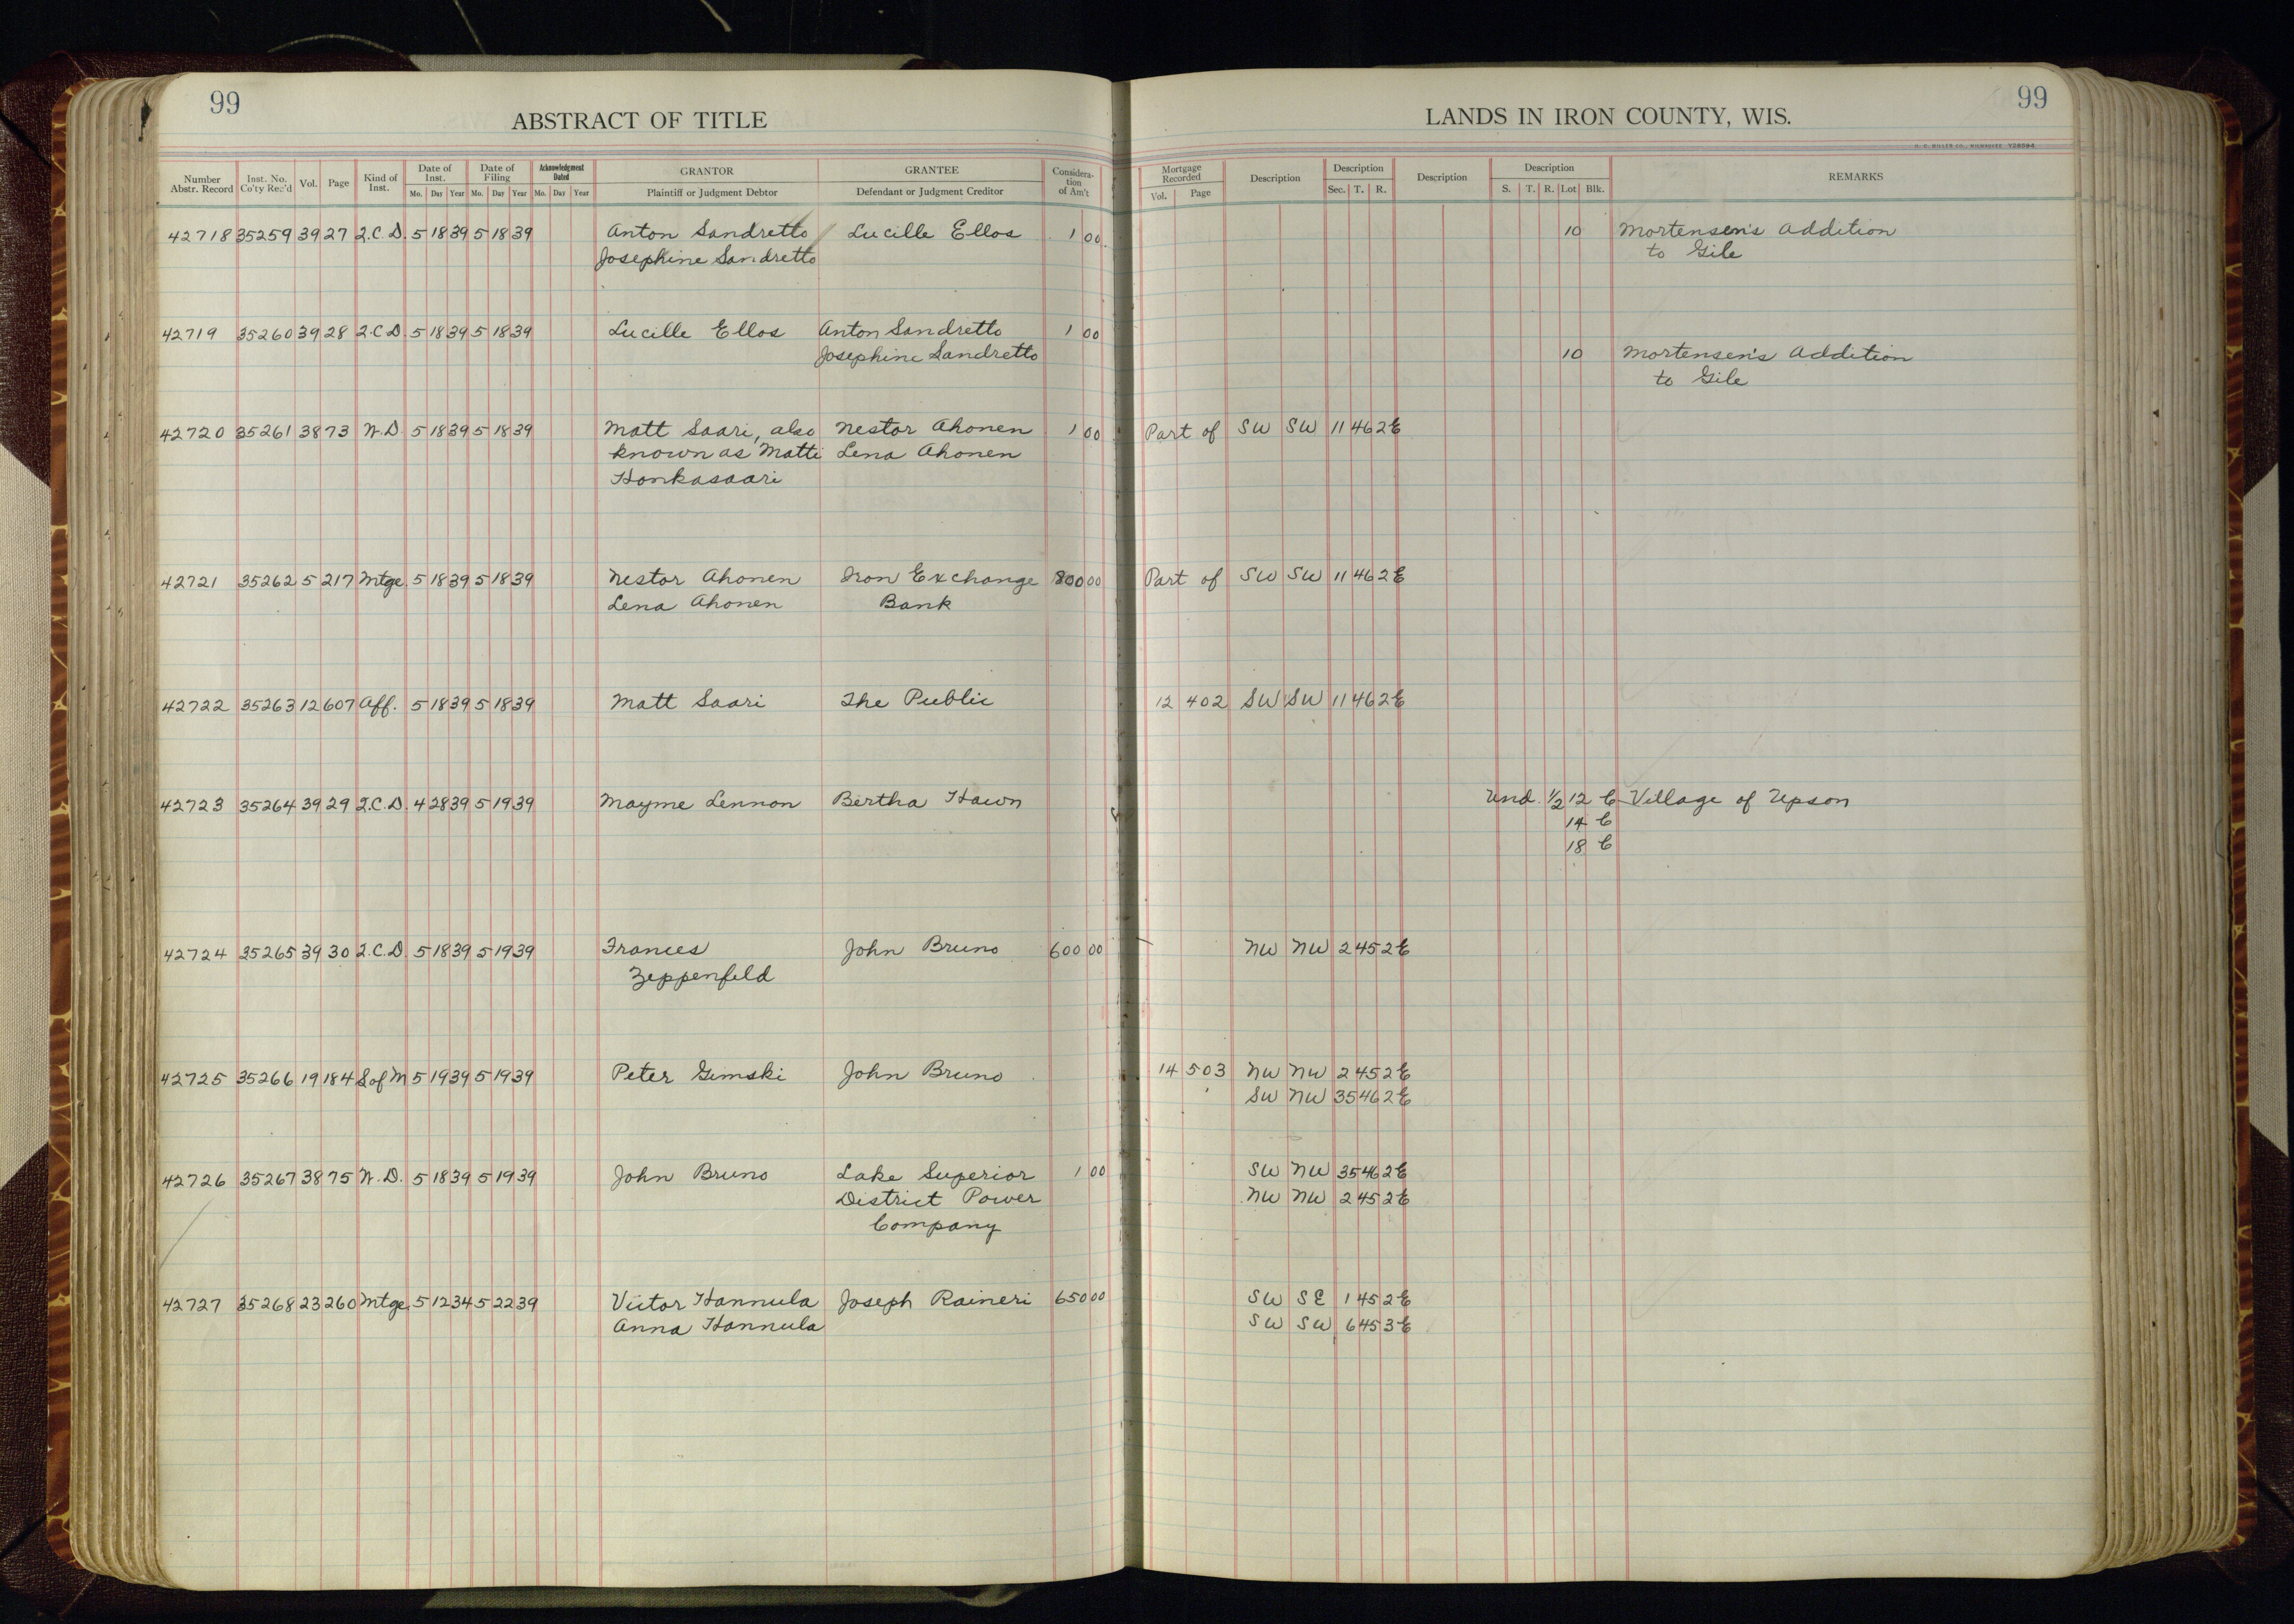 99
ABSTRACT OF TITLE
Number Abstr. Record
Inst. No. Co'ty Rec'd
Vol.
Page
Kind of Inst.
Date of Inst.
Mo. Day Year
Date of Filing
Mo. Day Year
Acknowledgment Dated
Mo. Day Year
GRANTOR
Plaintiff or Judgment Debtor
GRANTEE
Defendant or Judgment Creditor
Considera-
tion
of Am't
99
LANDS IN IRON COUNTY, WIS.
H. C. MILLER CO., MILWAUKEE Y28594
Mortgage Recorded
Vol. Page
Description
Description
Sec. T. R.
Description
Description
S. T. R. Lot Blk.
REMARKS
42718 35259 39 27 Q.C.D. 5 18 39 5 18 39 Anton Sandretto Lucille Ellos 1 00 10 Mortensen's Addition
Josephine Sandretto to Gile
42719 35260 39 28 Q.C.D. 5 18 39 5 18 39 Lucille Ellos Anton Sandretto 1 00
Josephine Sandretto 10 Mortensen's Addition
to Gile
42720 35261 38 73 W.D. 5 18 39 5 18 39 Matt Saari, also Nestor Ahonen 1 00 Part of SW SW 11 46 2E
known as Matti Lena Ahonen
Honkasaari
42721 35262 5 217 Mtge. 5 18 39 5 18 39 Nestor Ahonen Iron Exchange 800 00 Part of SW SW 11 46 2E
Lena Ahonen Bank
42722 35263 12 607 Aff. 5 18 39 5 18 39 Matt Saari The Public 12 402 SW SW 11 46 2E
42723 35264 39 29 Q.C.D. 4 28 39 5 19 39 Mayme Lennon Bertha Hawn Und. 1/2 12 C Village of Upson
14 C
18 C
42724 35265 39 30 Q.C.D. 5 18 39 5 19 39 Frances John Bruno 600 00 NW NW 2 45 2E
Zeppenfeld
42725 35266 19 184 S of M 5 19 39 5 19 39 Peter Gimski John Bruno 14 503 NW NW 2 45 2E
SW NW 35 46 2E
42726 35267 38 75 W.D. 5 18 39 5 19 39 John Bruno Lake Superior 1 00 SW NW 35 46 2E
District Power NW NW 2 45 2E
Company
42727 35268 23 260 Mtge. 5 12 34 5 22 39 Victor Hannula Joseph Raineri 650 00 SW SE 1 45 2E
Anna Hannula SW SW 6 45 3E